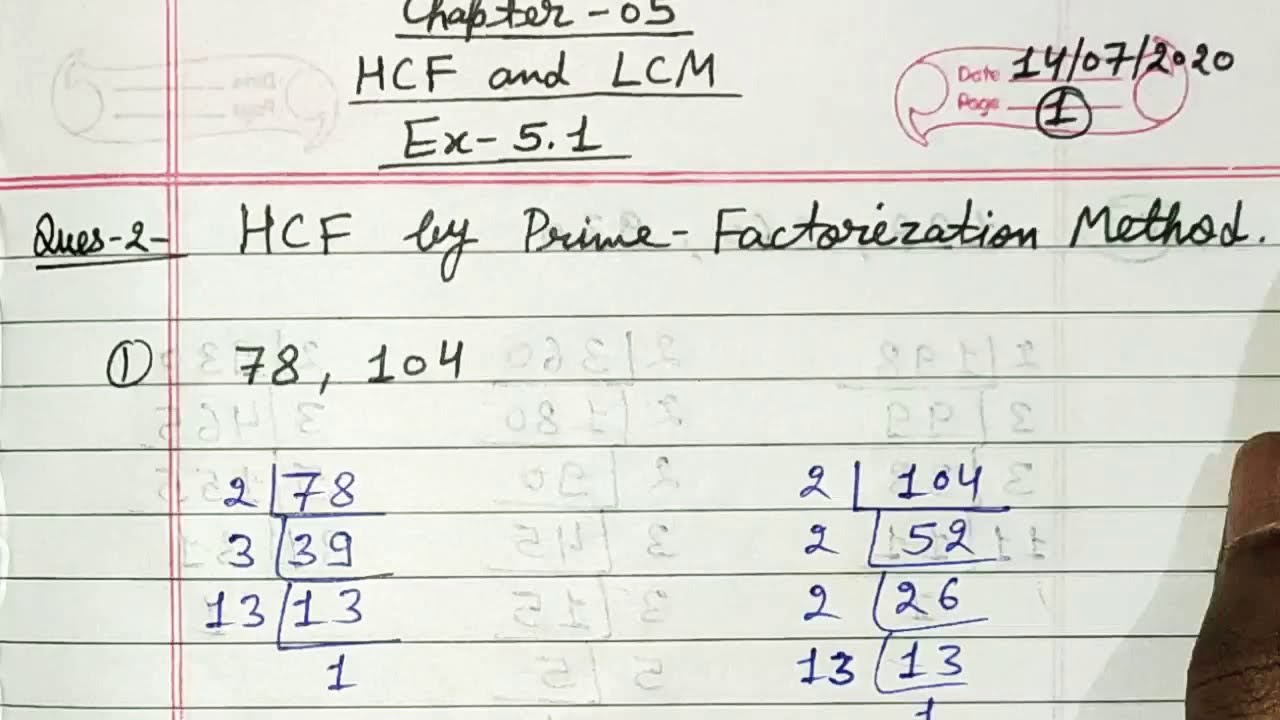 Chapter - 05
HCF and LCM
Ex- 5.1
Date 14/07/2020
Page 1
Ques-2- HCF by Prime-Factorization Method.
① 78, 104
2 | 78
3 | 39
13 | 13
1
2 | 104
2 | 52
2 | 26
13 | 13
1